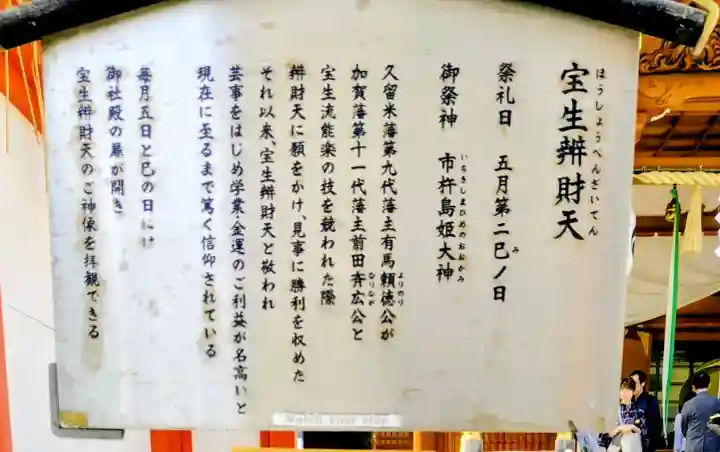 宝生辨財天
ほうしょうべんざいてん
祭礼日 五月第二巳ノ日
み
御祭神 市杵島姫大神
いちきしまひめのおおかみ
久留米藩第九代藩主有馬頼徳公が
よりのり
加賀藩第十一代藩主前田斉広公と
なりなが
宝生流能楽の技を競われた際
辨財天に願をかけ、見事に勝利を収めた
それ以来、宝生辨財天と敬われ
芸事をはじめ学業・金運のご利益が名高いと
現在に至るまで篤く信仰されている
毎月五日と巳の日にけ
御社殿の扉が開き
宝生辨財天のご神像を拝観できる
Watch your step